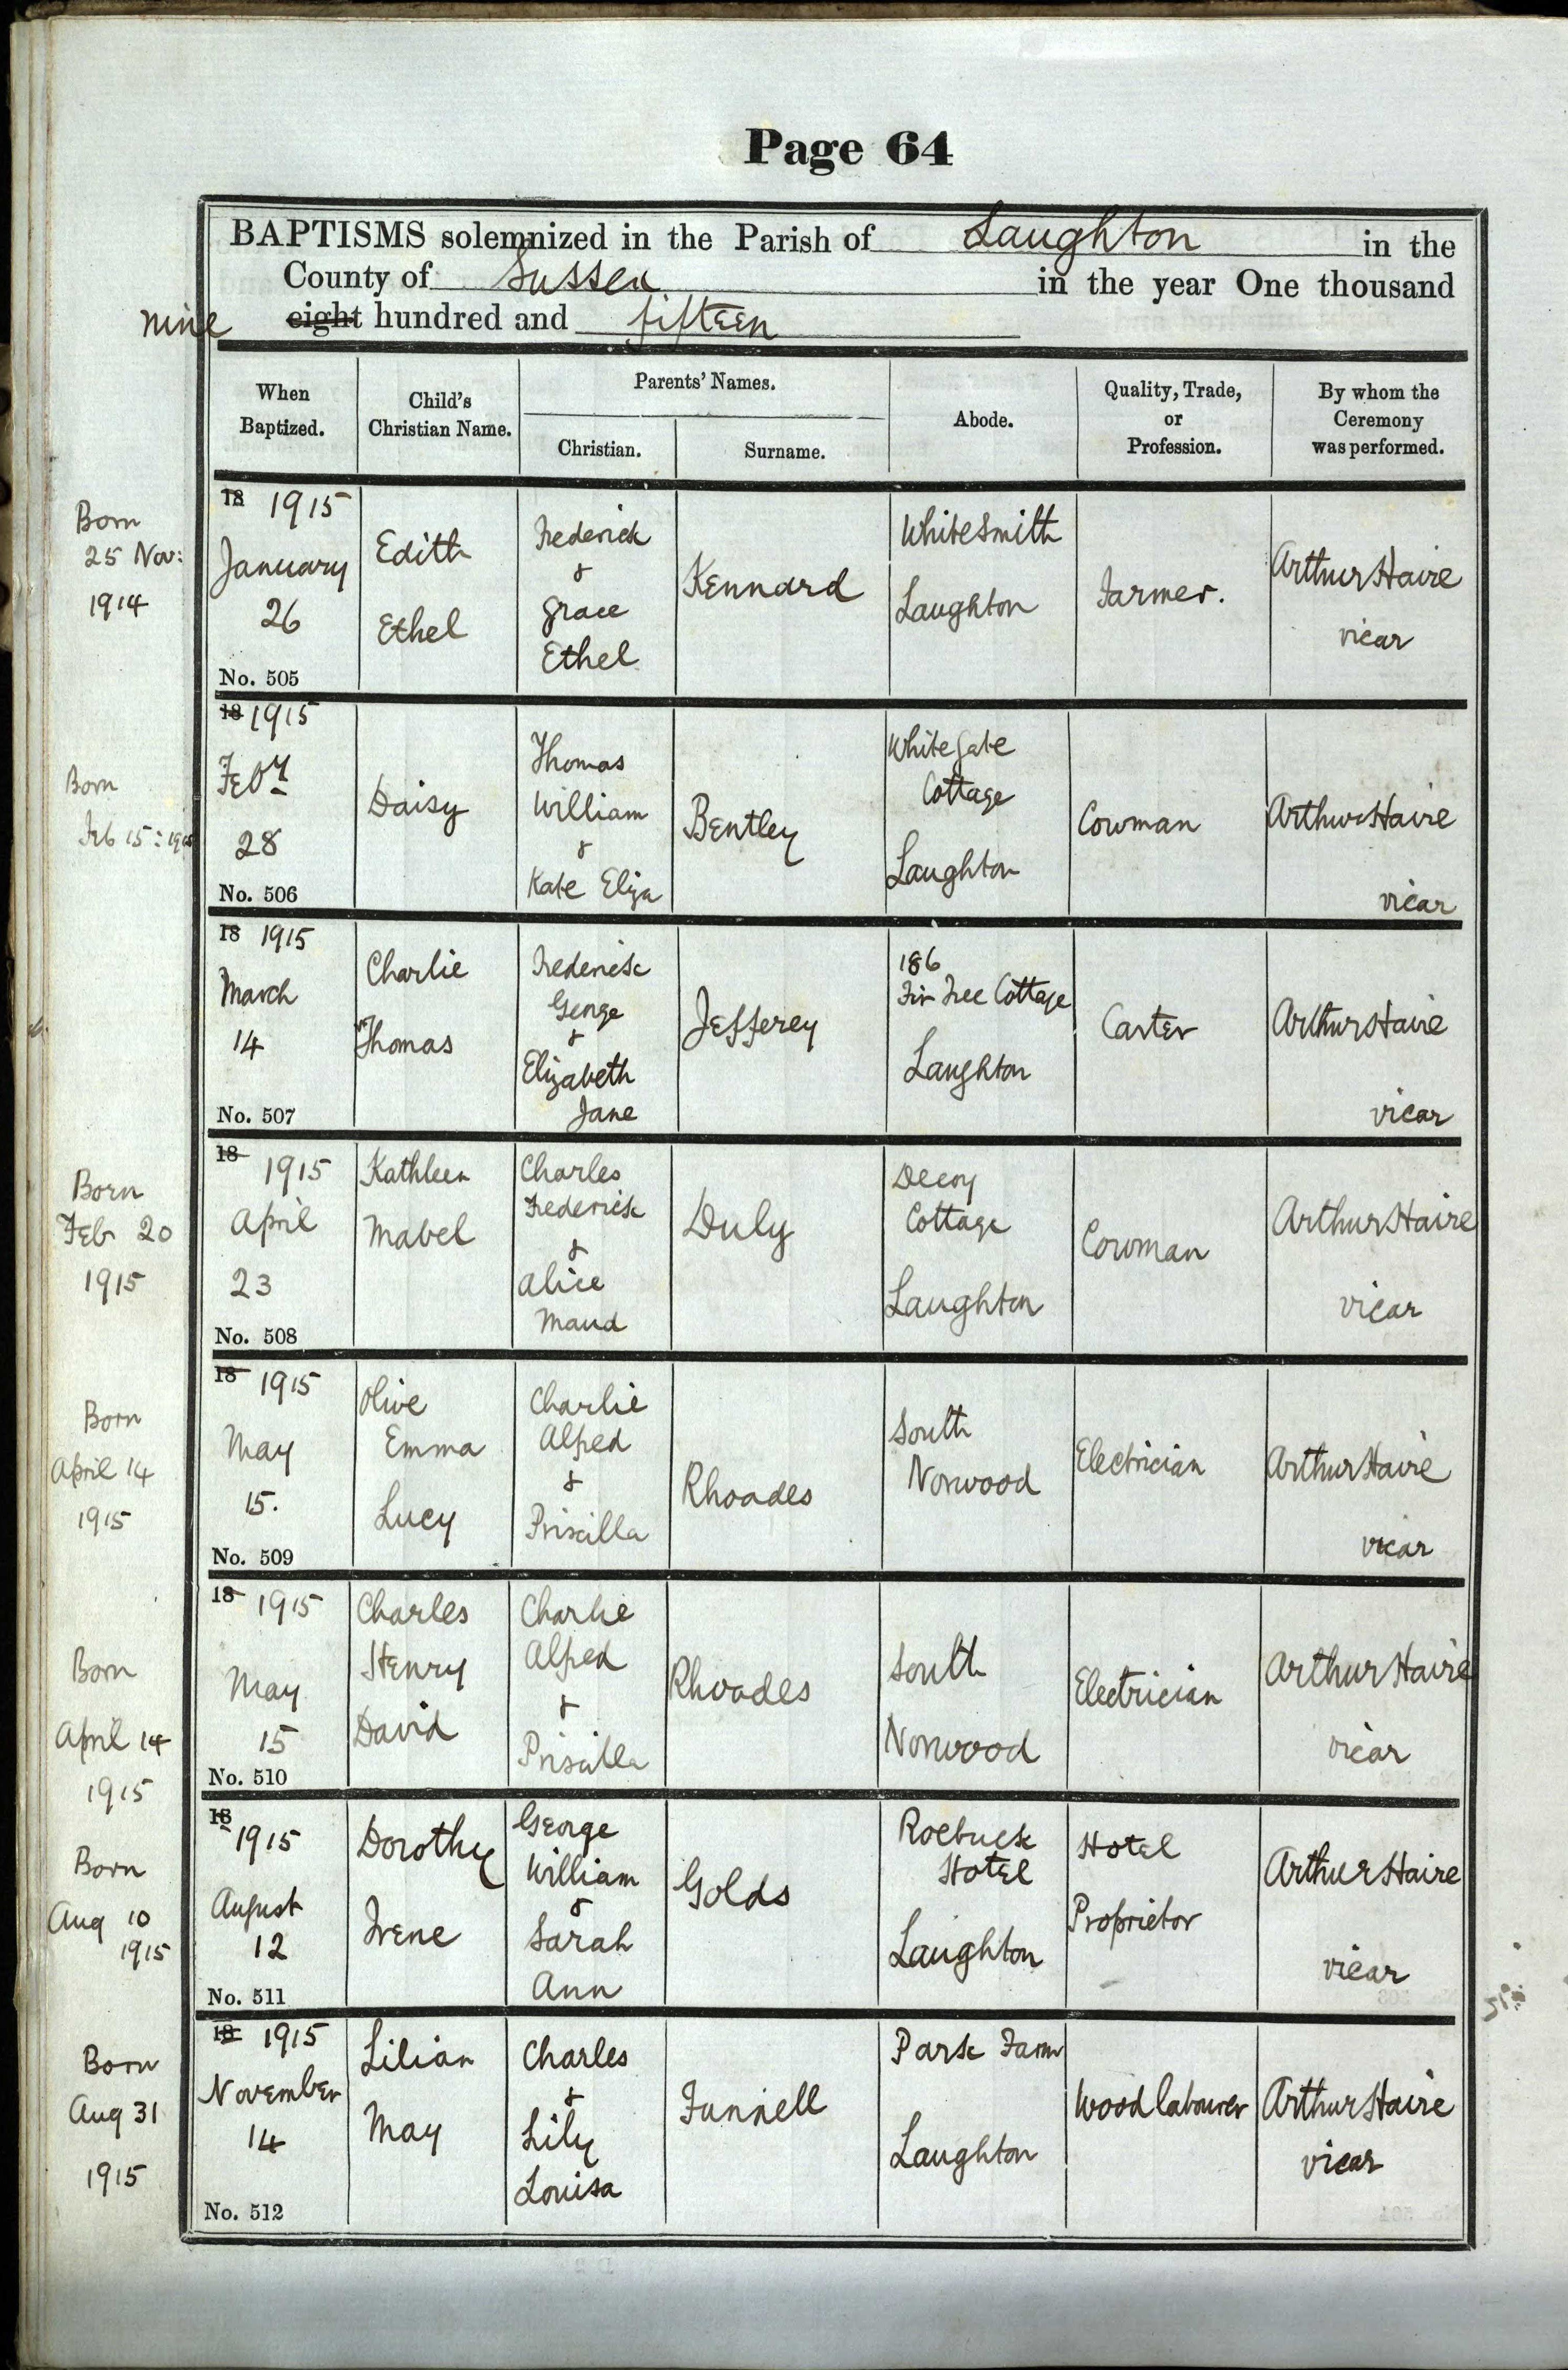 Page 64
BAPTISMS solemnized in the Parish of Laughton in the
County of Sussex in the year One thousand
nine eight hundred and fifteen
When Baptized.
Child's Christian Name.
Parents' Names.
Christian.
Surname.
Abode.
Quality, Trade, or Profession.
By whom the Ceremony was performed.
Born
25 Nov:
1914
18 1915
January
26
No. 505
Edith
Ethel
Frederick
&
Grace
Ethel
Kennard
Whitesmith
Laughton
Farmer.
Arthur Haire
vicar
Born
Feb 15: 1915
18 1915
Feby
28
No. 506
Daisy
Thomas
William
&
Kate Eliza
Bentley
Whitegate
Cottage
Laughton
Cowman
Arthur Haire
vicar
18 1915
March
14
No. 507
Charlie
Thomas
Frederick
George
&
Elizabeth
Jane
Jefferey
186
Fir Tree Cottage
Laughton
Carter
Arthur Haire
vicar
Born
Feb 20
1915
18 1915
April
23
No. 508
Kathleen
Mabel
Charles
Frederick
&
Alice
Maud
Duly
Decoy
Cottage
Laughton
Cowman
Arthur Haire
vicar
Born
April 14
1915
18 1915
May
15.
No. 509
Olive
Emma
Lucy
Charlie
Alfred
&
Priscilla
Rhoades
South
Norwood
Electrician
Arthur Haire
vicar
Born
April 14
1915
18 1915
May
15
No. 510
Charles
Henry
David
Charlie
Alfred
&
Priscilla
Rhoades
South
Norwood
Electrician
Arthur Haire
vicar
Born
Aug 10
1915
18 1915
August
12
No. 511
Dorothy
Irene
George
William
&
Sarah
Ann
Golds
Roebuck
Hotel
Laughton
Hotel
Proprietor
Arthur Haire
vicar
Born
Aug 31
1915
18 1915
November
14
No. 512
Lilian
May
Charles
&
Lily
Louisa
Funnell
Park Farm
Laughton
Wood labourer
Arthur Haire
vicar